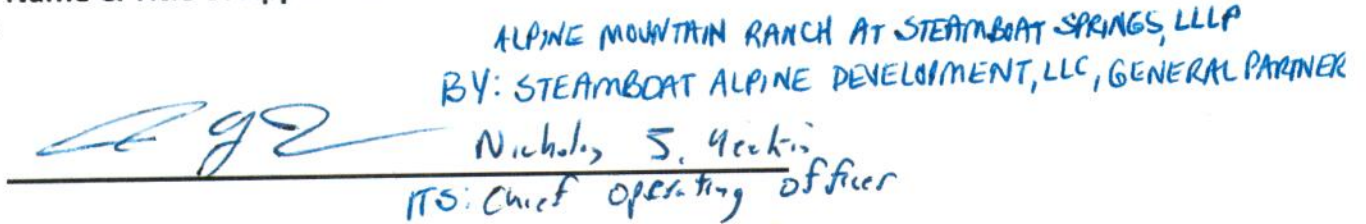 ALPINE MOUNTAIN RANCH AT STEAMBOAT SPRINGS, LLLP
BY: STEAMBOAT ALPINE DEVELOPMENT, LLC, GENERAL PARTNER
Nicholas S.
ITS: Chief Operating Officer